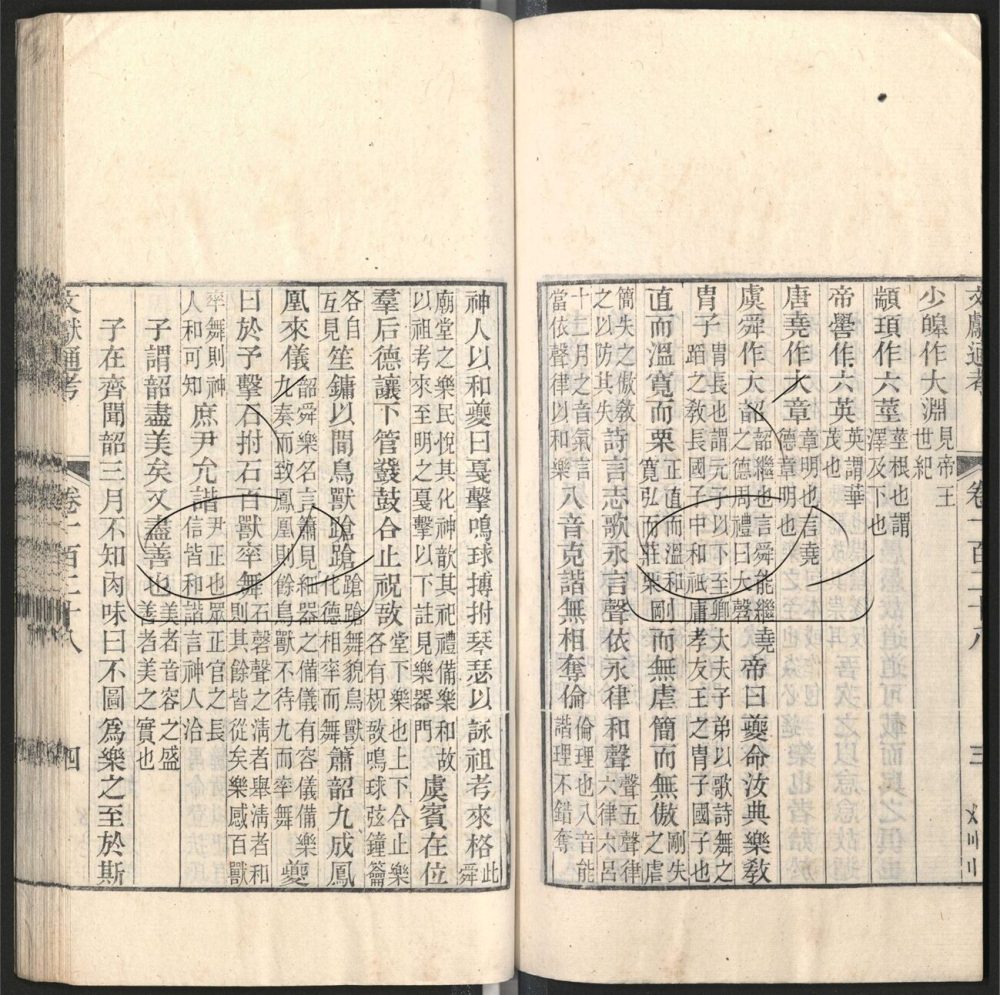 文獻通考 卷一百二十八 三
少皥作大淵見帝王世紀
顓頊作六莖莖根也謂澤及下也
帝嚳作六英英謂華茂也
唐堯作大章章明也言堯德章明也
虞舜作大韶韶繼也言舜能繼堯之德周禮曰大㲈帝曰夔命汝典樂敎
胄子胄長也謂元子以下至卿大夫子弟以歌詩舞之蹈之敎長國子中和祗庸孝友王之胄子國子也
直而溫寬而栗正直而溫和寬弘而莊栗剛而無虐簡而無傲剛失之虐
簡失之傲敎之以防其失詩言志歌永言聲依永律和聲聲五聲律六律六呂
十二月之音氣言當依聲律以和樂八音克諧無相奪倫倫理也八音能諧理不錯奪
神人以和夔曰戛擊鳴球搏拊琴瑟以詠祖考來格此舜
廟堂之樂民悅其化神歆其祀禮備樂和故以祖考來至明之戛擊以下註見樂器門虞賓在位
羣后德讓下管鼗鼓合止柷敔堂下樂也上下合止樂各有柷敔鳴球弦鐘籥
各自互見笙鏞以間鳥獸蹌蹌蹌蹌舞貌鳥獸化德相率而舞簫韶九成鳳
凰來儀韶舜樂名言簫見細器之備儀有容儀備樂九奏而致鳳凰則餘鳥獸不待九而率舞夔
曰於予擊石拊石百獸率舞石磬聲之淸者舉淸者和則其餘皆從矣樂感百獸
率舞則神人和可知庶尹允諧尹正也眾正官之長信皆和諧言神人洽
子謂韶盡美矣又盡善也美者音容之盛善者美之實也
子在齊聞韶三月不知肉味曰不圖爲樂之至於斯
文獻通考 卷一百二十八 四